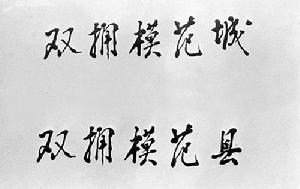 双拥模范城
双拥模范县